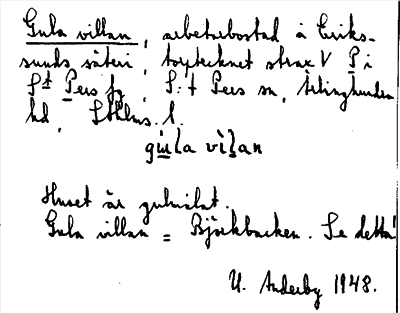 Gula villan, arbetarbostad å Eriks-
sunds säteri, torptecknet strax V P i
St Pers fg, S:t Pers sn, Ärlinghundra
hd, Sthlms. l.
gu̲la vìl̲an
Huset är gulmålat.
Gula villan = Björkbacken. Se detta!
U. Anderby 1948.